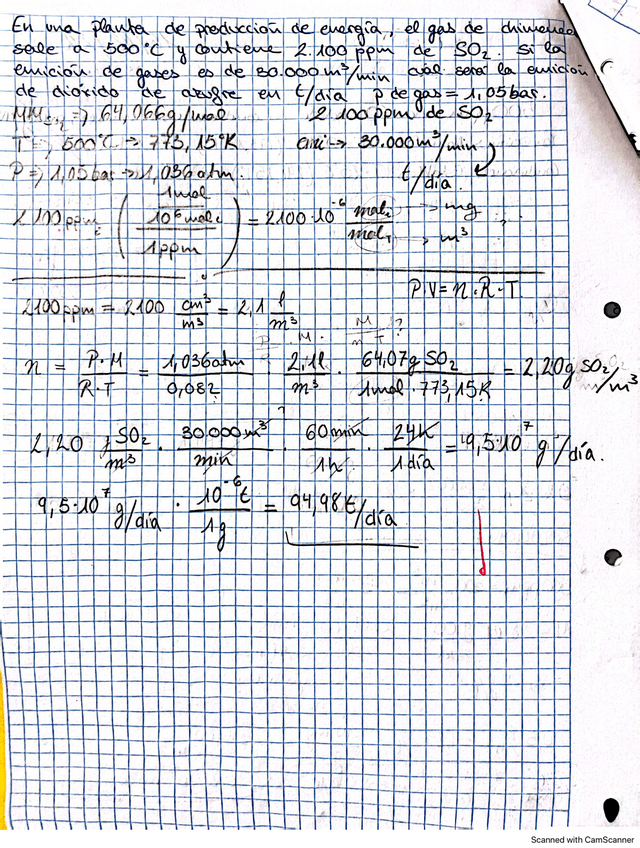 En una planta de producción de energía, el gas de chimenea
sale a 500°C y contiene 2.100 ppm de SO₂. Si la
emición de gases es de 30.000 m³/min cuál será la emición
de dióxido de azufre en t/día P de gas = 1,05 bar.
MM SO₂ => 64,066 g/mol 2 100 ppm de SO₂
T => 500°C -> 773,15°K emi -> 30.000 m³/min
P => 1,05 bar -> 1,036 atm. t/día.
2 100 ppm (1 mol / 10⁶ mol / 1 ppm) = 2100·10⁻⁶ mol / mol -> mg -> m³ ?
P·V = n·R·T
2100 ppm = 2100 cm³/m³ = 2,1 l/m³
n = P·M / R·T = 1,036 atm / 0,082 · 2,1 l / m³ · 64,07 g SO₂ / 1 mol · 773,15 K = 2,20 g SO₂/m³
2,20 g SO₂ / m³ · 30.000 m³ / min · 60 min / 1 h · 24 h / 1 día = 9,5·10⁷ g/día.
9,5·10⁷ g/día · 10⁻⁶ t / 1 g = 94,98 t/día
Scanned with CamScanner